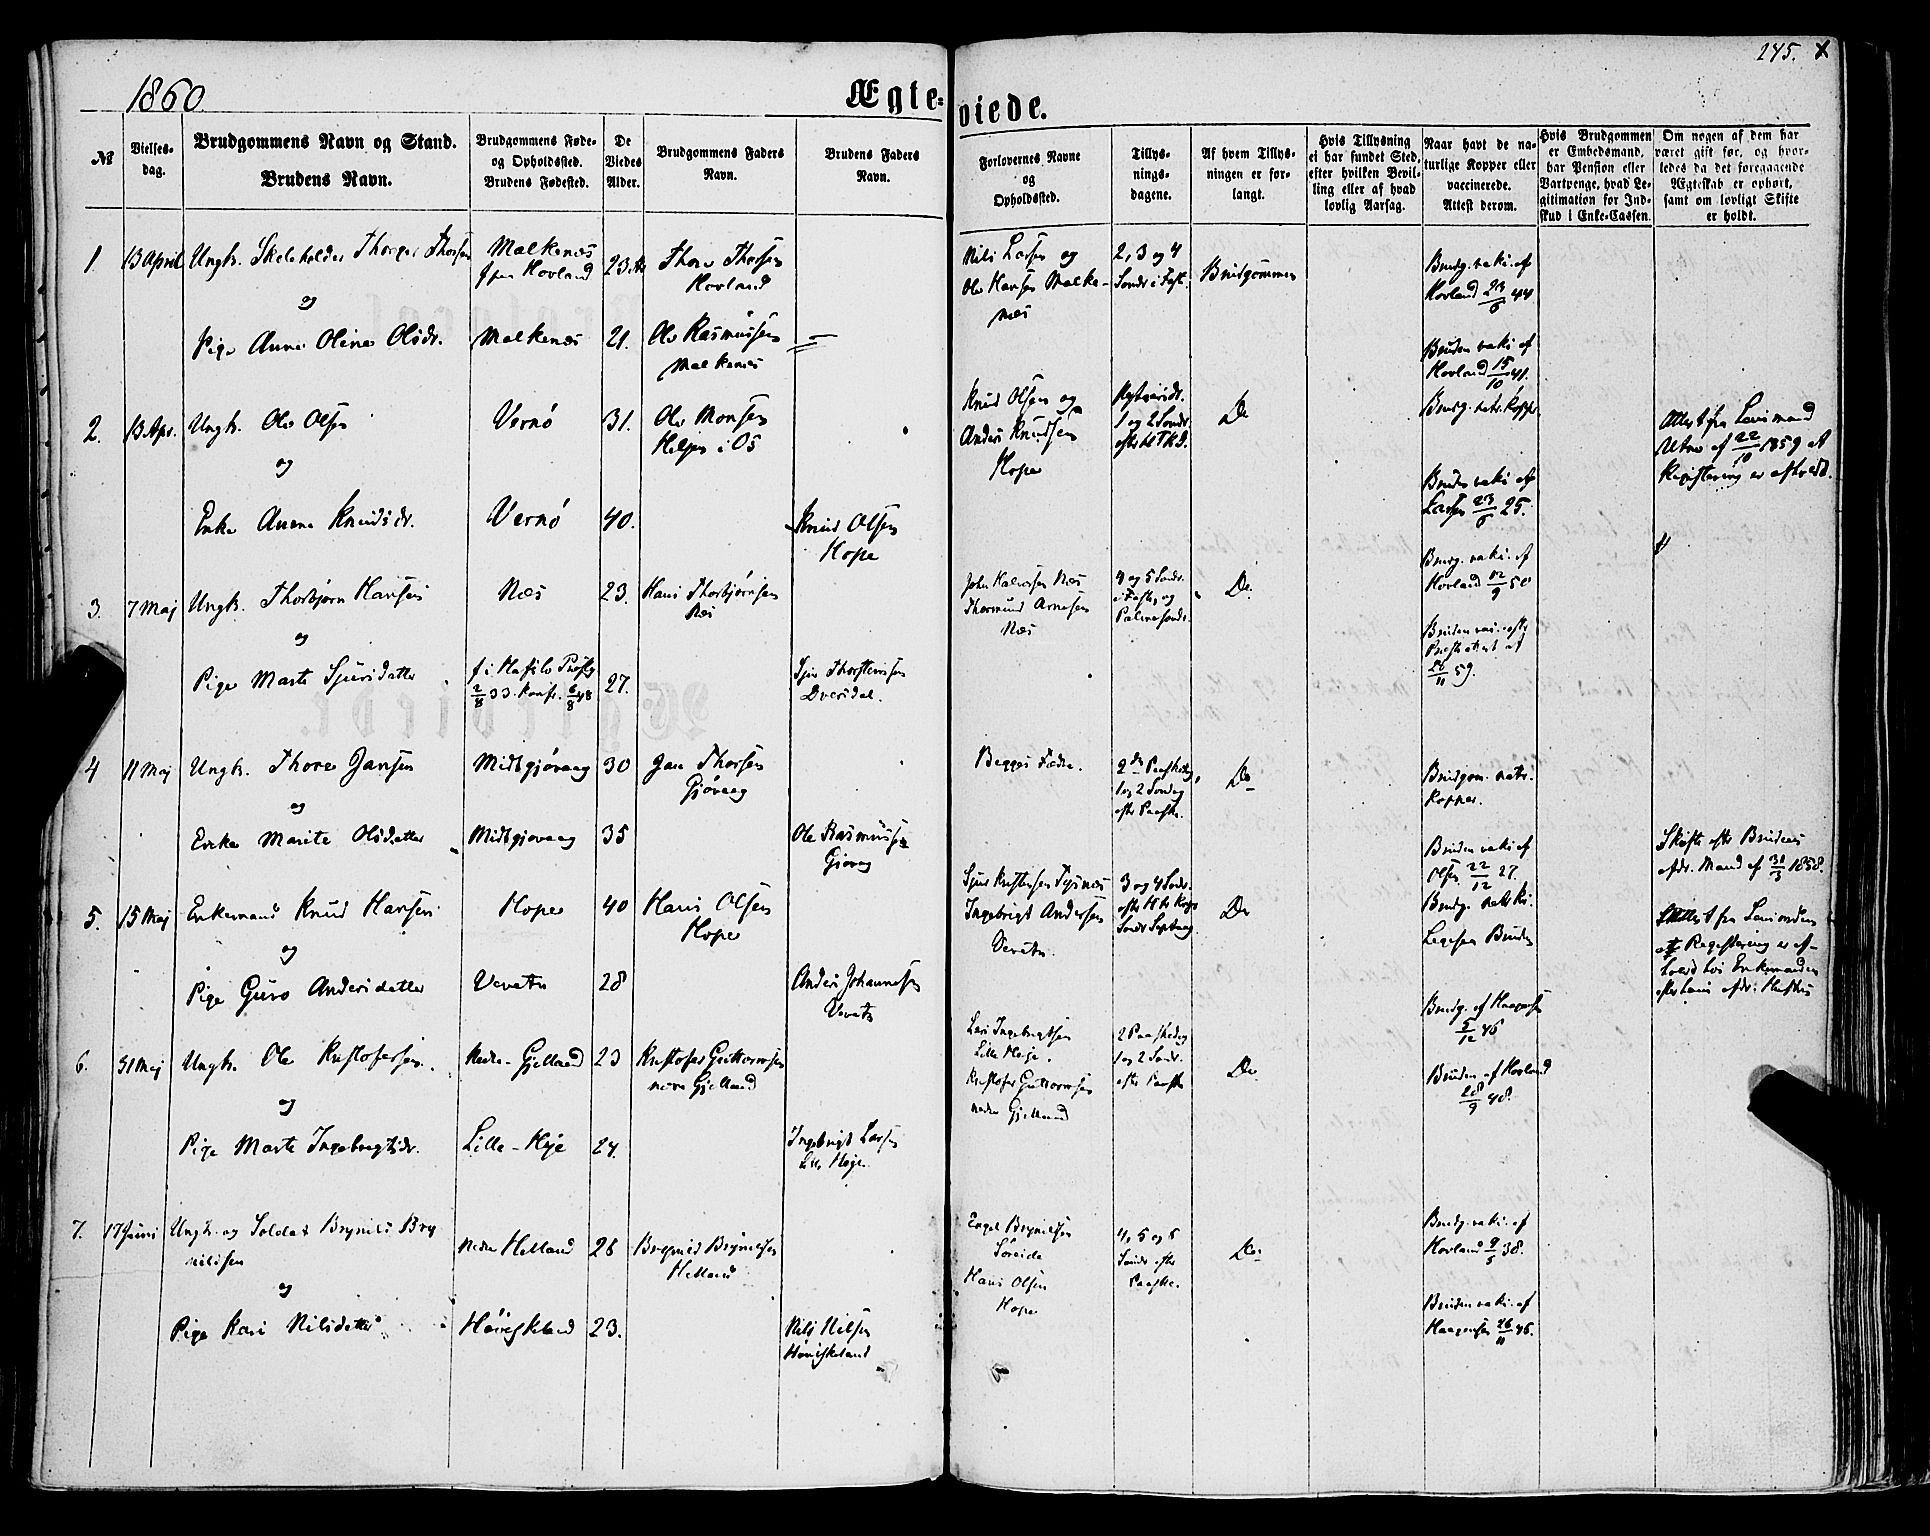 1860.
Ægte-
viede.
245. X
№
Vielses-
dag.
Brudgommens Navn og Stand.
Brudens Navn.
Brudgommens Føde-
og Opholdsted.
Brudens Fødested.
De
Viedes
Alder.
Brudgommens Faders
Navn.
Brudens Faders
Navn.
Forlovernes Navne
og
Opholdssted.
Tillys-
nings-
dagene.
Af hvem Tillys-
ningen er for-
langt.
Hvis Tillysning
ei har fundet Sted,
efter hvilken Bevil-
ling eller af hvad
lovlig Aarsag.
Naar havt de na-
turlige Kopper eller
vaccinerede.
Attest derom.
Hvis Brudgommen
er Embedsmand,
har Pension eller
Vartpenge, hvad Le-
gitimation for Ind-
skud i Enke-Cassen.
Om nogen af dem har
været gift før, og hvor-
ledes da det foregaaende
Ægteskab er ophørt,
samt om lovligt Skifte
er holdt.
1.
13 April
Ungk. Skoleholder Thorger Thorsen
Malkenæs
Hovland
23
Thore Thorsen
Hovland
Nils Larsen og
Ole Hansen Malke-
næs
2, 3 og 4
Sondr. i Fast.
Brudgommen
Brudg. vaki. af
Hovland 23/6 44
og
Pige Anna Oline Olsdr.
Malkenæs
21.
Ole Rasmussen
Malkenæs
Bruden vaki. af
Hovland 15/10 41.
2.
13 Apr.
Ungk. Ole Olsen
Vernø
31.
Ole Monsen
i Os
Knud Olsen og
Anders Knudsen
Hope
1 og 2 Sondr.
efter H.T.K.D.
Do
Brudg. natr. Kopper
Attest fra Lensmand
af 22/10 1859 at
Registering er afholdt.
og
Enke Anna Knudsdr.
Vernø
40.
Knud Olsen
Hope
Bruden vaki. af
23/6 25.
3.
7 Maj
Ungk. Thorbjørn Hansen
Næs
23.
Hans Thorbjørnsen
Næs
Næs
Thormund Arnesen
Næs
4 og 5 Sondr.
i Faste, og
Palmesondr.
Do.
Brudg. vaki. af
Hovland 12/9 50
og
Pige Marte Sjursdatter
f. i Hafslo
2/8 33. Konf. 6/8 48
27.
Sjur Thorstensen
Dversdal.
Bruden vac. efter
Presteattest af
26/11 59.
4
11 Maj
Ungk. Thore Jansen
Midtgjøvaag
30
Jan Thorsen
Gjøvaag
Begges Fædre.
2den Paaskedag,
1 og 2 Sondag
efter Paaske.
Do
Brudgom. natr.
Kopper.
og
Enke Marite Olsdatter
Midtgjøvaag
35
Ole Rasmussen
Gjøvag
Bruden vaki af
Olsen 22/12 27.
Skifte efter Brudens
afdr. Mand af 31/5 1858.
5.
15 Maj
Enkemand Knud Hansen
Hope
40
Hans Olsen
Hope
Sjur
Ingebrigt Andersen
Vevatn
3 og 4 Sondr.
efter H tr Kong
Do
Brudg. natr. Ko.
Legesaa Bruden
Attest fra Lensmanden
at Registering er af-
holdt hos Enkemanden
efter hans afdr. Hustru
og
Pige Guro Andersdatter
Vevatn
28
Anders Johannesen
Vevatn
6.
31 Maj
Ungk. Ole Kristofersen
Nedre-Gjelland
23
Kristofer Guttormsen
nedre Gjelland
Lars Ingebrigtsen
Lille Heje.
Kristofer Guttormsen
nedre Gjelland
2 Paaskedag
1 og 2 Sondr.
efter Paaske
Do
Brudg. af Haagensen
5/12 46
Bruden af Hovland
28/9 48.
og
Pige Marte Ingebrigtsdr.
Lille-Heje
24.
Ingebrigt Larsen
Lille Heje.
7.
17 Juni
Ungk. og Soldat Brynild Bry
nildsen
Nedre Helland
26
Brynild Brynildsen
Helland
Engel Brynildsen
Søreide
Hans Olsen
Hope
4, 5 og 6
Sondr. efter
Paaske.
Do.
Brudg. vaki. af
Hovland 9/5 38.
og
Pige Kari Nilsdatter
23.
Nils Nilsen
Bruden vaki. af
Haagensen 26/11 46.